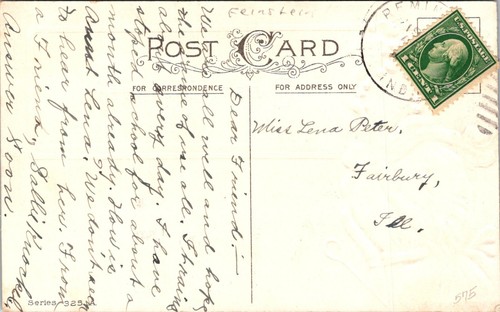 Feinstein
POST CARD
FOR CORRESPONDENCE
FOR ADDRESS ONLY
U.S. POSTAGE
1 CENT 1
REMI
IND
Dear Friend:—
We are all well and hope
the same of use all. It rains
all every day. I have
stoped school for about a
month already. How is
Aunt Lena. We don't ever
to hear from her. From
a Friend, Sally
Answer Soon.
Miss Lena Peter.
Fairbury,
Ill.
Series 325
575